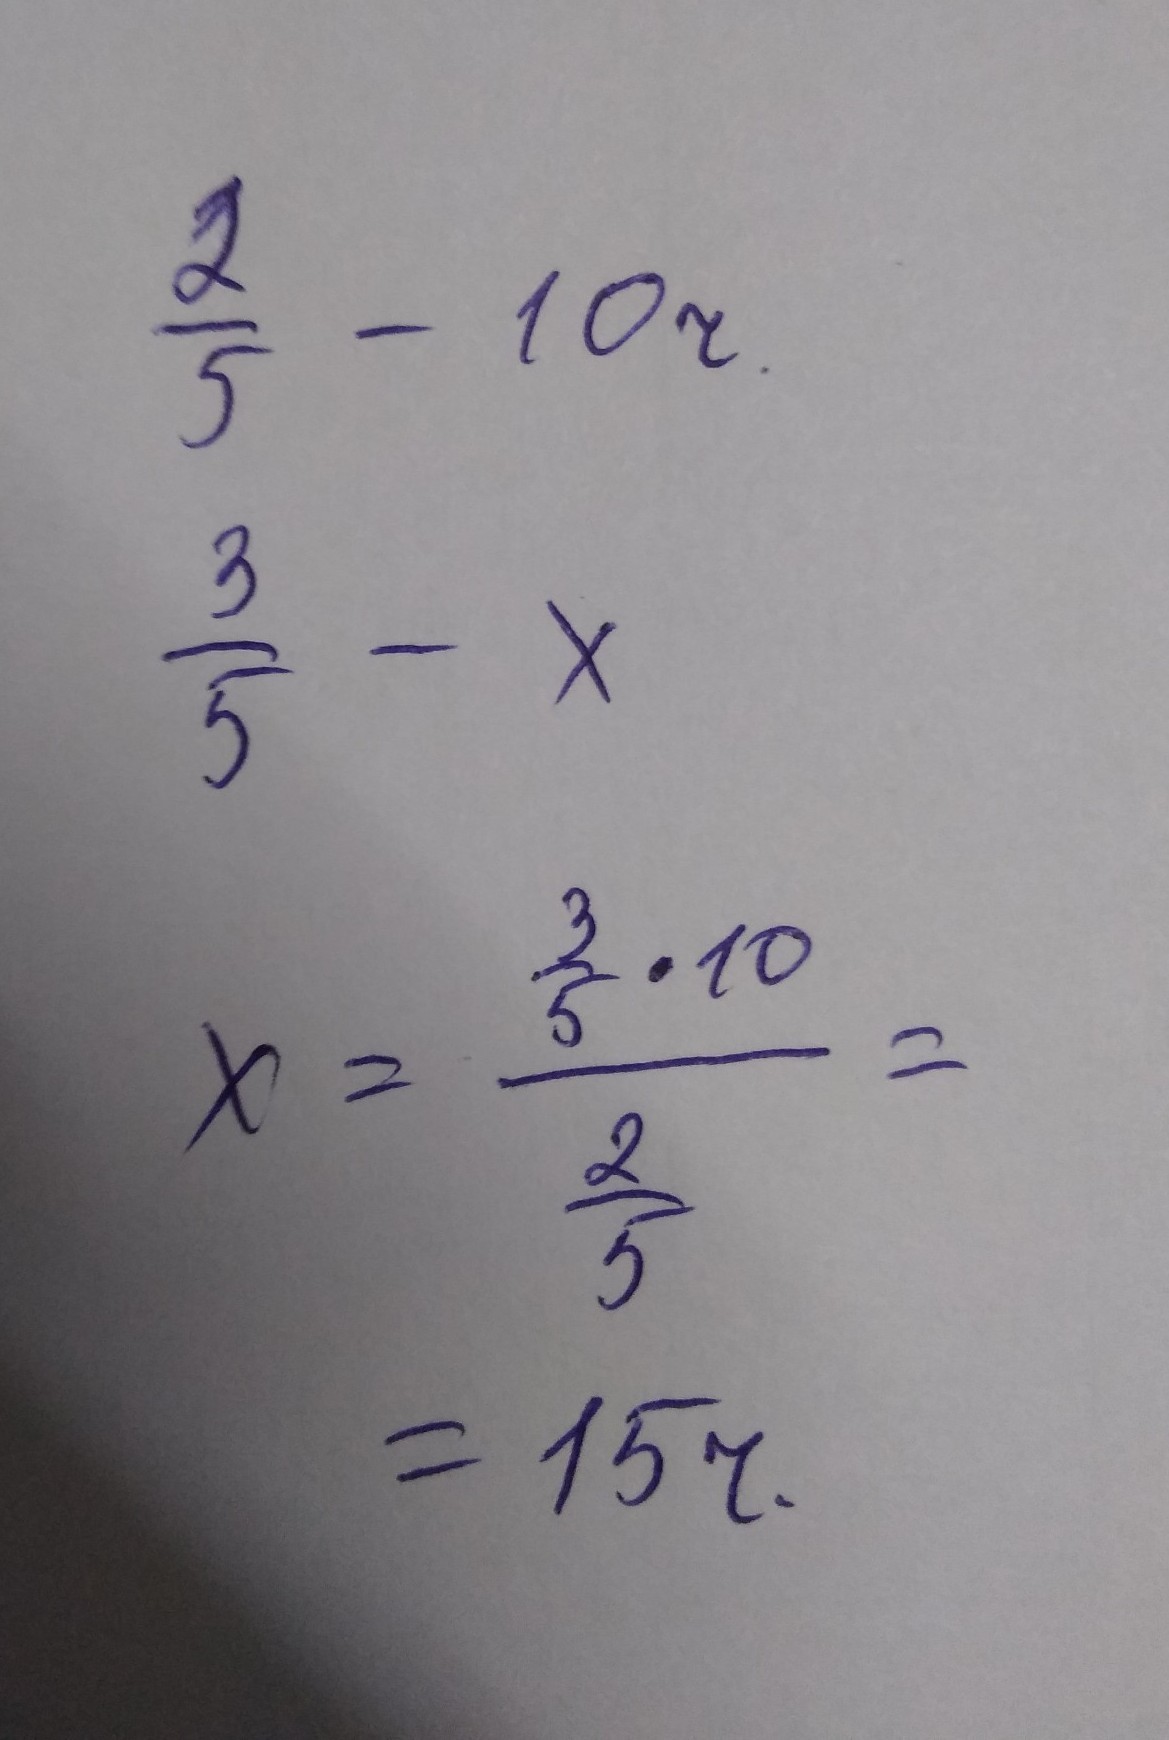 2/5 – 10ч.
3/5 – x
x = (3/5 · 10) / (2/5) =
= 15ч.